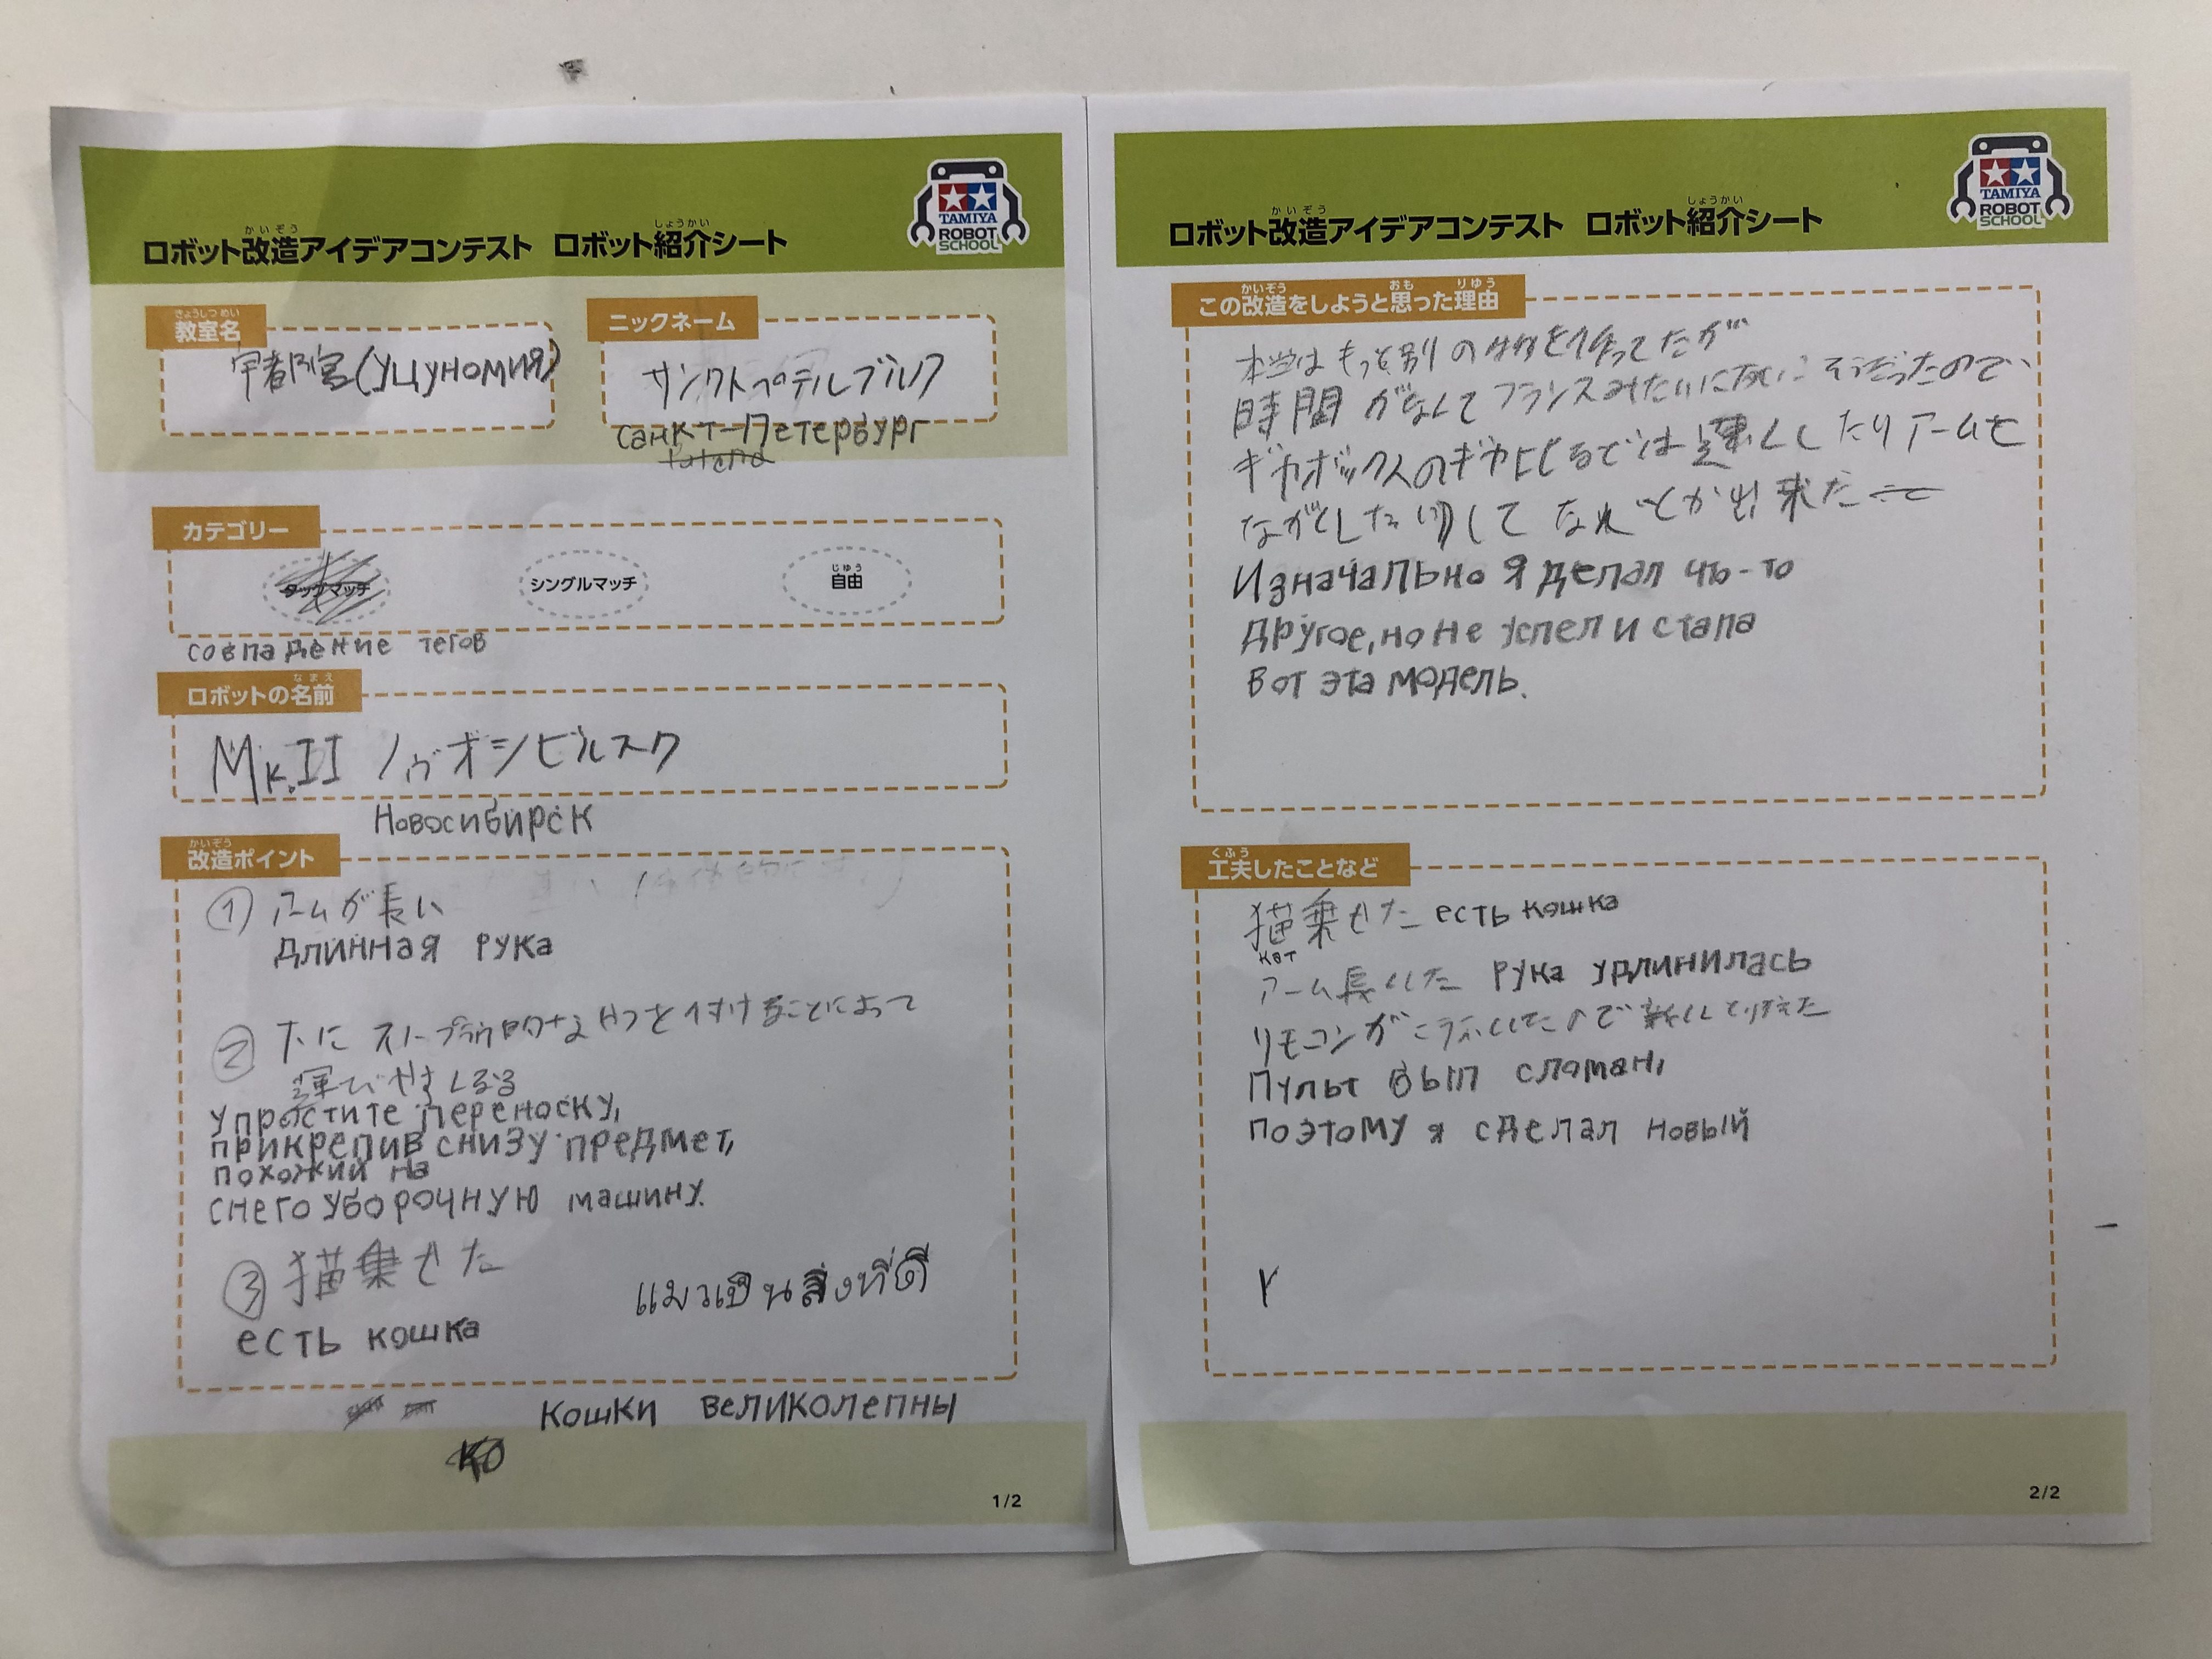 ロボット改造アイデアコンテスト ロボット紹介シート
かいぞう しょうかい
TAMIYA
ROBOT
SCHOOL
きょうしつめい
教室名
宇都宮(Уцуномия)
ニックネーム
サンクトペテルブルク
Санкт-Петербург
カテゴリー
タッグマッチ
シングルマッチ
じゆう
自由
совпадение тегов
なまえ
ロボットの名前
Mk.II ノヴオシビルスク
Новосибирск
かいぞう
改造ポイント
① アームが長い
длинная рука
② 下に スノープラウ的なやつを付けることによって
運びやすくなる
упростите переноску,
прикрепив снизу предмет,
похожий на
снегоуборочную машину.
③ 猫乗せた
แมวเป็นสิ่งที่ดี
есть кошка
кошки великолепны
1/2
ロボット改造アイデアコンテスト ロボット紹介シート
かいぞう しょうかい
TAMIYA
ROBOT
SCHOOL
かいぞう おも りゆう
この改造をしようと思った理由
本当はもっと別の を作ってたが
時間がなくてフランスみたいに そうだったので、
ギヤボックスのギヤ 速くしたりアームを
ながくしたりして なんとか出来た
Изначально я делал чь-то
другое, но не успел и стала
вот эта модель.
くふう
工夫したことなど
猫乗せた есть кошка
кот
アーム長くした рука удлинилась
リモコンが ので新しく
Пульт был сломан,
поэтому я сделал новый
2/2